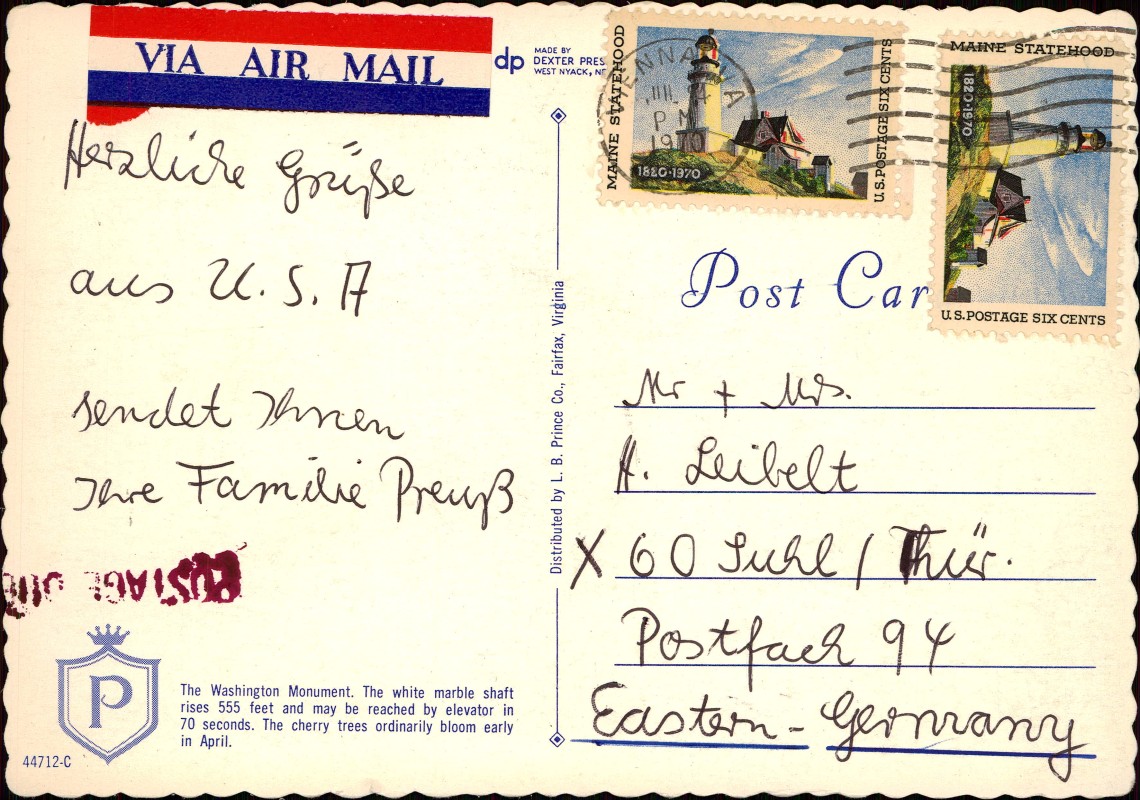 VIA AIR MAIL
dp MADE BY
DEXTER PRES
WEST NYACK, NE
MAINE STATEHOOD
1820·1970
U.S.POSTAGE SIX CENTS
MAINE STATEHOOD
1820·1970
U.S.POSTAGE SIX CENTS
VIENNA VA
JUL 24
PM
1970
Herzliche Grüße
aus U.S.A
sendet Ihnen
Ihre Familie Preuß
Post Car
Mr + Mrs.
H. Leibelt
X 60 Suhl / Thür.
Postfach 94
Eastern - Germany
Distributed by L. B. Prince Co., Fairfax, Virginia
POSTAGE DUE
P
The Washington Monument. The white marble shaft
rises 555 feet and may be reached by elevator in
70 seconds. The cherry trees ordinarily bloom early
in April.
44712-C